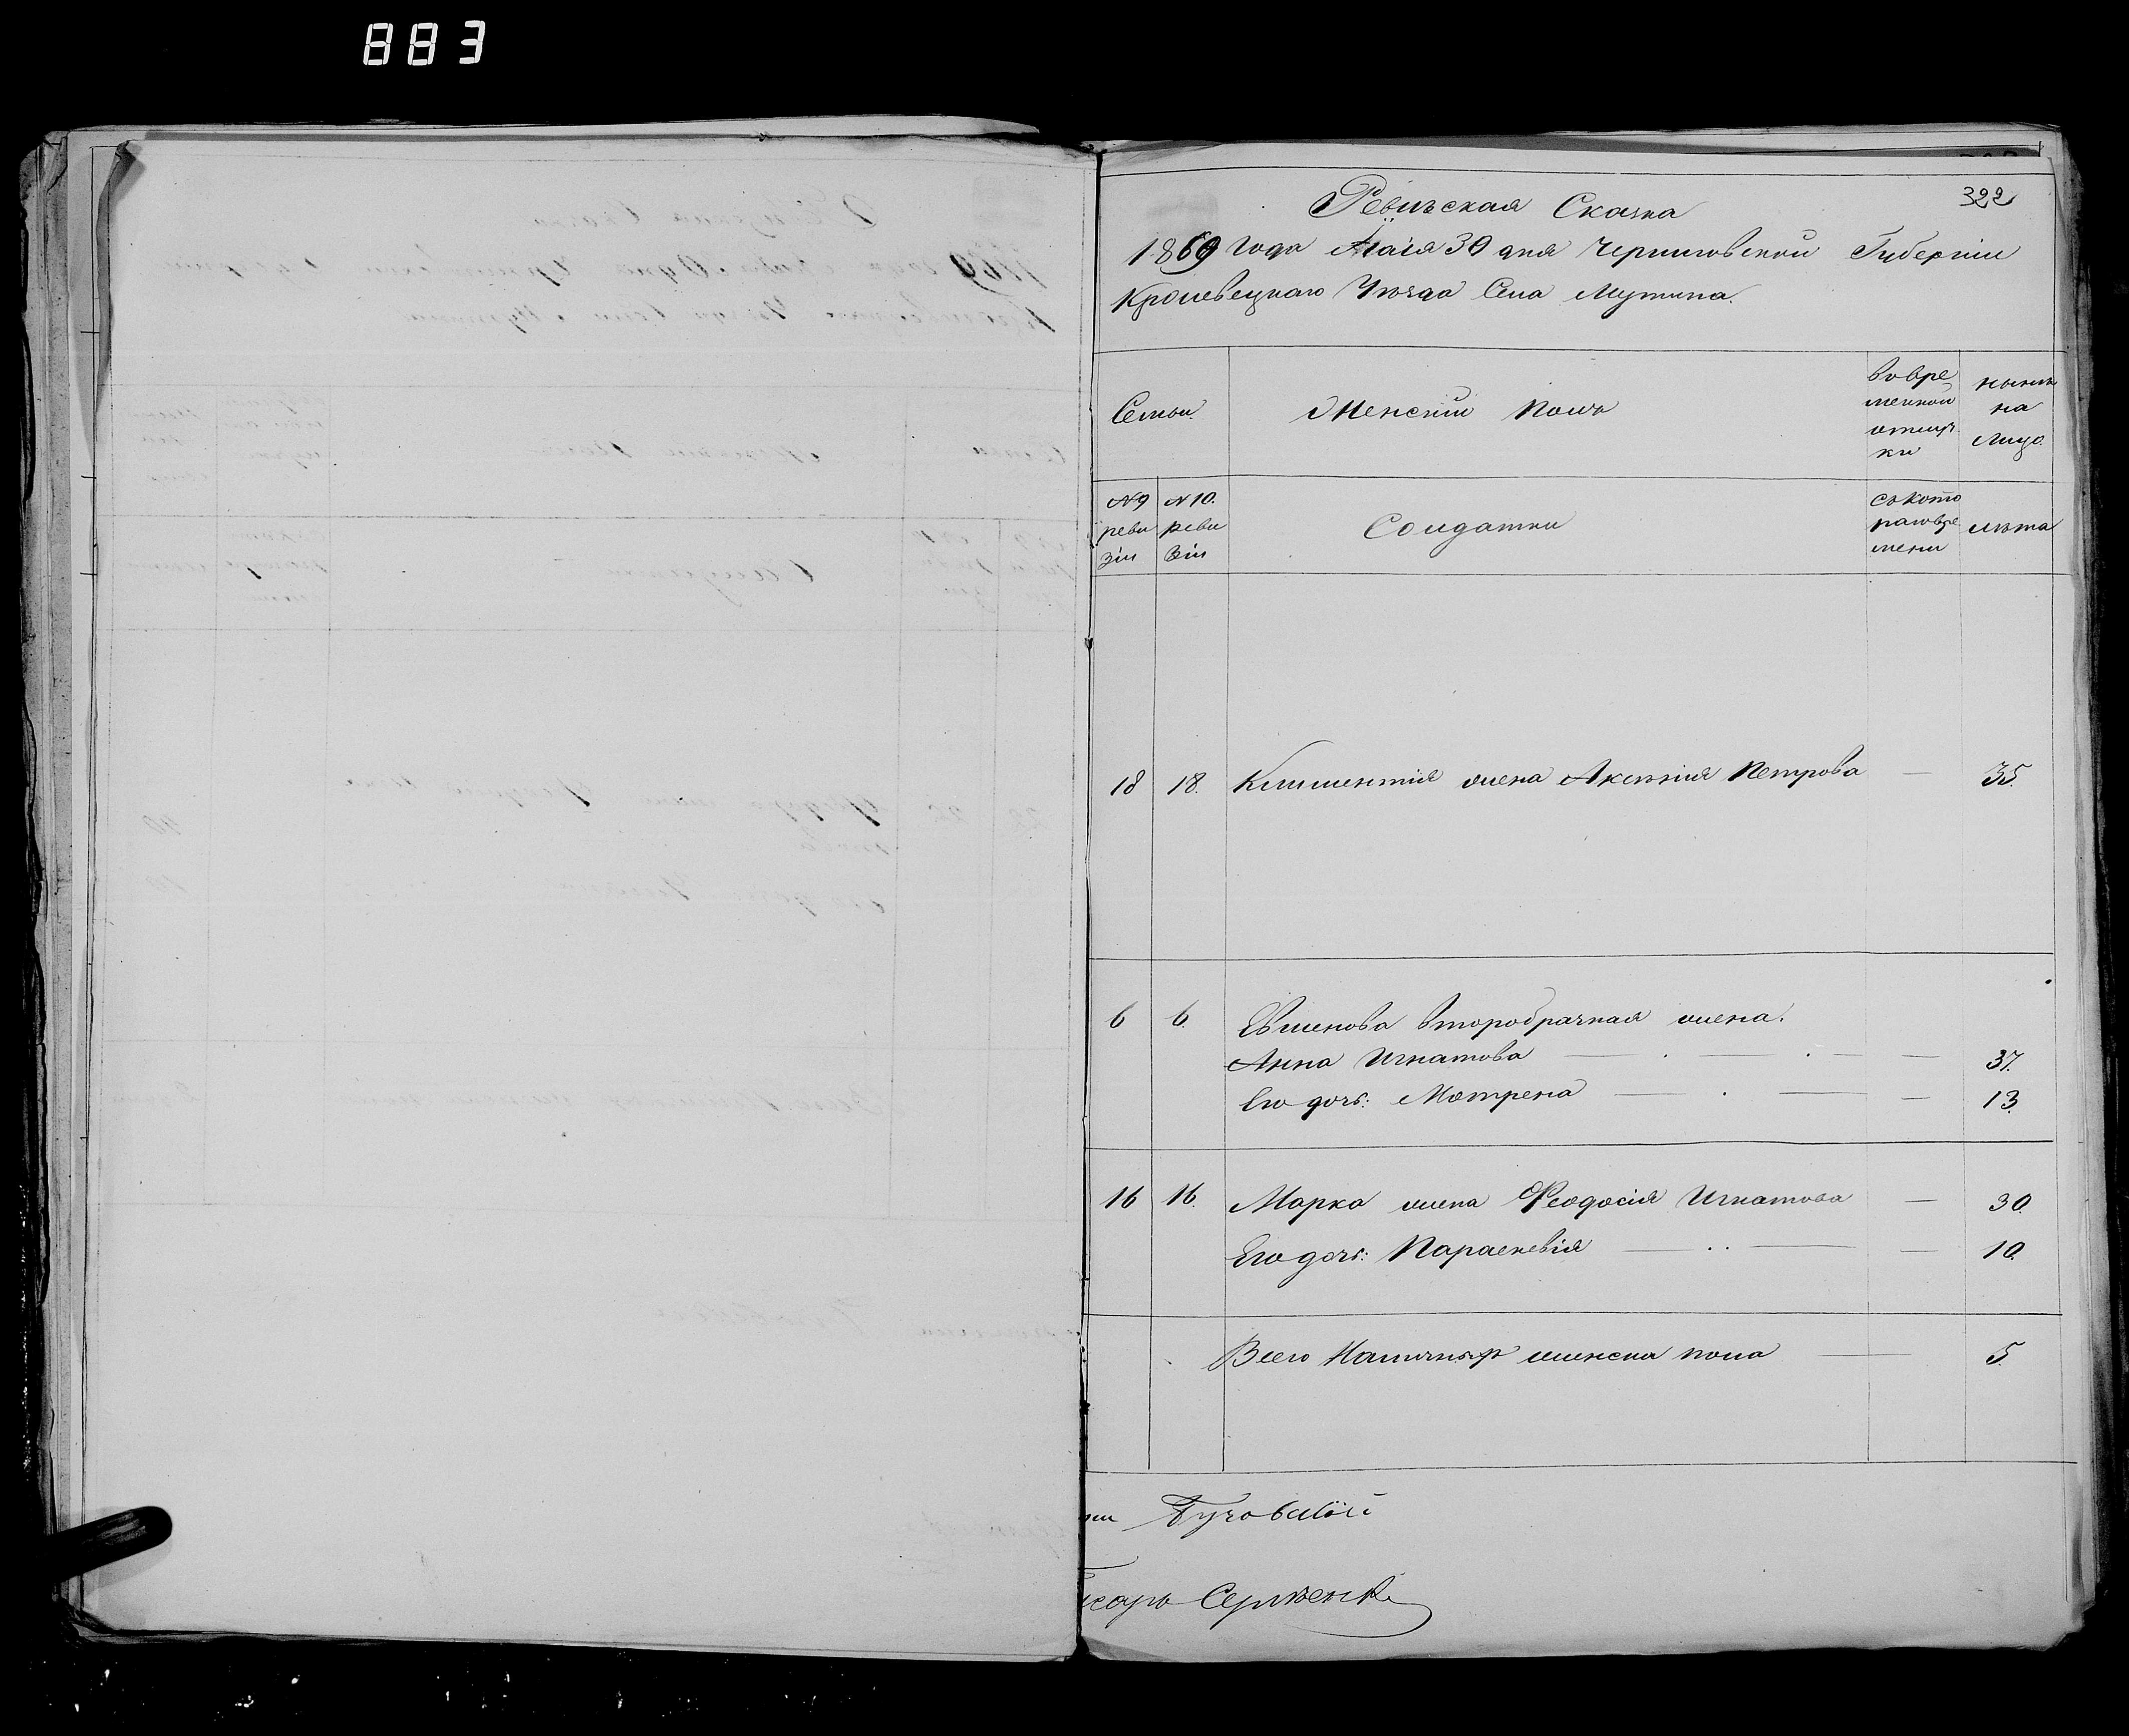 883
322
Ревизская Сказка
1869 года Маія 30 дня Черниговской Губерніи
Кролевецкаго Уѣзда Села Мутина.
Семьи
Женскій Полъ
вовре
менной
отлуч
ки
нынѣ
на
лицо
№9
реви
зіи
№10.
реви
зіи
Солдатки
съкото
раговре
мени
лѣта
18 18. Климентія жена Аксинія Петрова — 35.
6 6. Евменова второбрачная жена.
Анна Игнатова — 37.
Его дочь: Мотрена — 13.
16 16. Марка жена Феодосія Игнатова — 30.
Его дочь: Параскевія — 10.
Всего Наличныхъ женска пола — 5.